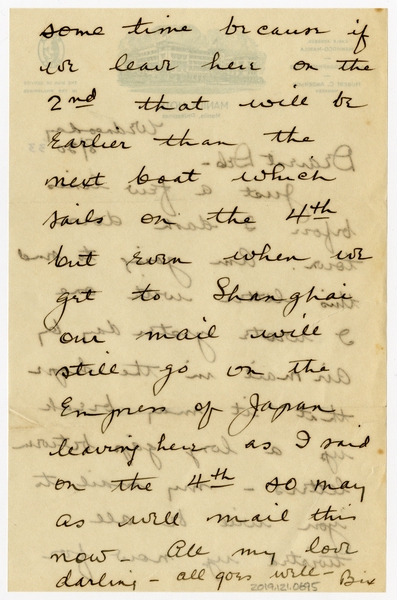 some time because if
we leave here on the
2nd that will be
Earlier than the
next boat which
sails on the 4th
but even when we
get to Shanghai
our mail will
still go on the
Empress of Japan
leaving here as I said
on the 4th so may
as well mail this
now - All my love
darling - all goes well - Bix
2019.121.0695